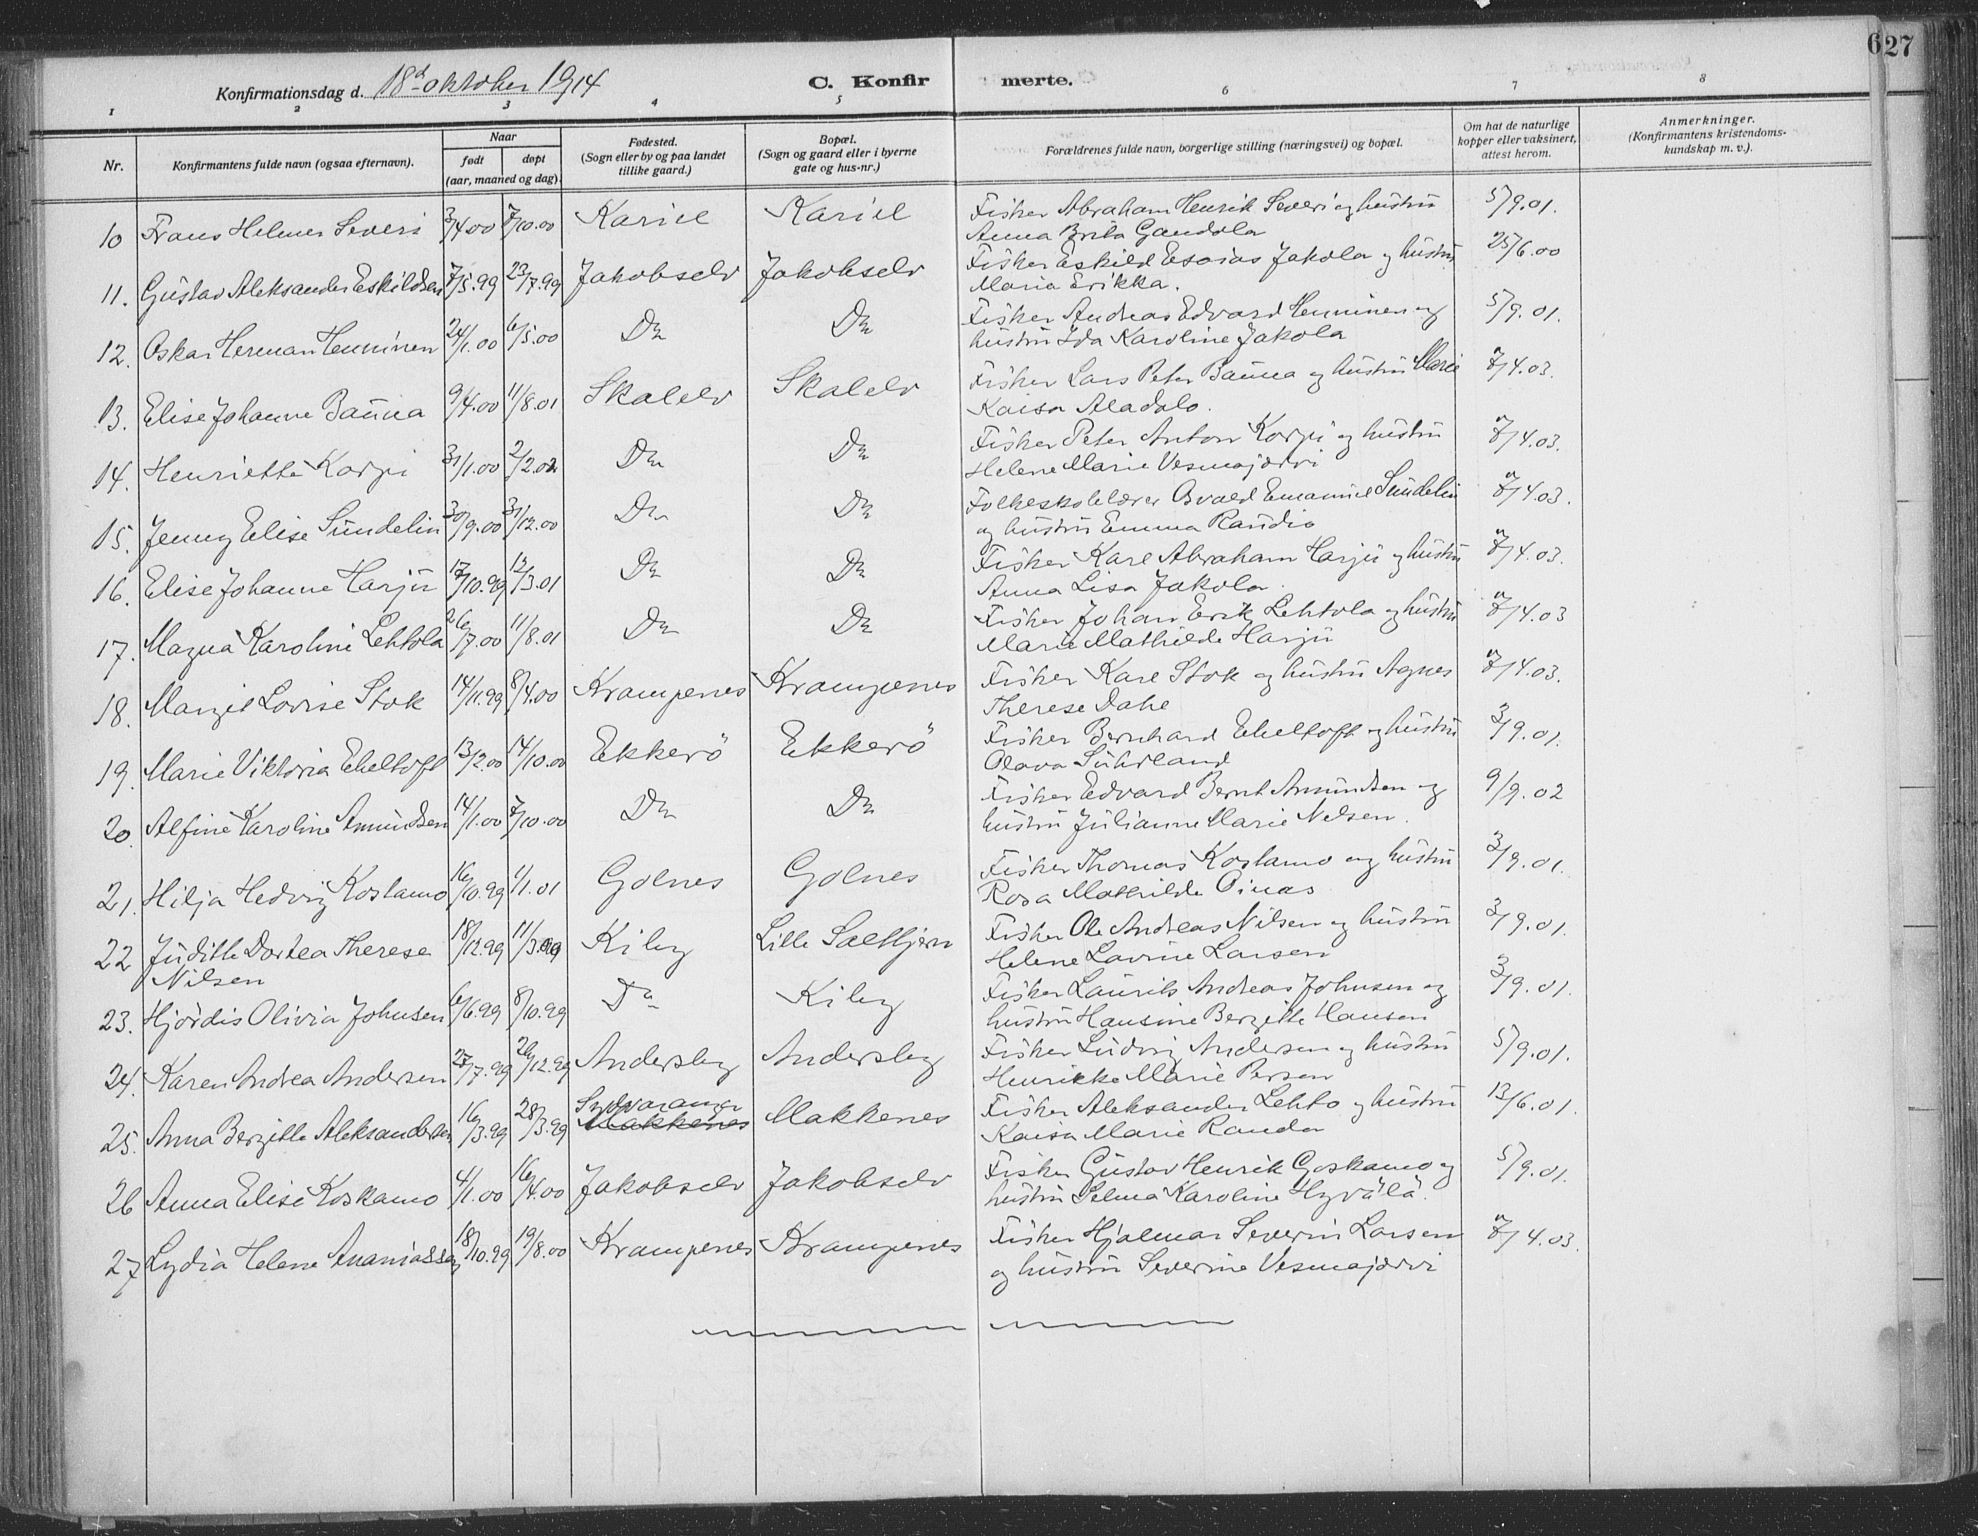 627
Konfirmationsdag d. 18d oktober 1914 C. Konfir merte.
1 2 3 4 5 6 7 8
Nr. Konfirmantens fulde navn (ogsaa efternavn). Naar født døpt (aar, maaned og dag). Fødested. (Sogn eller by og paa landet tillike gaard.) Bopæl. (Sogn og gaard eller i byerne gate og hus-nr.) Forældrenes fulde navn, borgerlige stilling (næringsvei) og bopæl. Om hat de naturlige kopper eller vaksinert, attest herom. Anmerkninger. (Konfirmantens kristendoms-kundskap m. v.).
10 Frans Helmer Severi 3/4.00 7/10.00 Kariel Kariel Fisker Abraham Henrik Severi og hustru 5/9.01.
Anna Brita Gandola
11. Gustav Aleksander Eskildsen 7/5.99 23/7.99 Jakobselv Jakobselv Fisker Eskild Esaias Jakola og hustru 25/6.00
Maria Erikka.
12. Oskar Herman Henninen 24/1.00 6/5.00 Do Do Fisker Andreas Edvard Henninen og 5/9.01.
hustru Ida Karoline Jakola
13. Elise Johanne Bauna 9/4.00 11/8.01 Skalelv Skalelv Fisker Lars Peter Bauna og hustru Marie 7/4.03.
Kaisa Aladalo.
14. Henriette Korpi 31/1.00 2/2.02 Do Do Fisker Peter Anton Korpi og hustru 7/4.03.
Helene Marie Vesmajærvi
15. Jenny Elise Sundelin 30/9.00 31/12.00 Do Do Folkeskolelærer Osvald Emanuel Sundelin 7/4.03.
og hustru Emma Raudio
16. Elise Johanne Harju 17/10.99 12/3.01 Do Do Fisker Karl Abraham Harju og hustru 7/4.03.
Anna Lisa Jakola.
17. Magna Karoline Lehtola 26/7.00 11/8.01 Do Do Fisker Johan Erik Lehtola og hustru 7/4.03
Marie Mathilde Harju
18. Margit Lovise Stok 14/11.99 8/4.00 Krampenes Krampenes Fisker Karl Stok og hustru Agnes 7/4.03.
Therese Dahl
19. Marie Viktoria Ebeltoft 13/2.00 14/10.00 Ekkerö Ekkerö Fisker Bernhard Ebeltoft og hustru 3/9.01.
Olava Suhrland
20. Alfine Karoline Amundsen 14/1.00 7/10.00 Do Do Fisker Edvard Bernt Amundsen og 9/9.02
hustru Julianne Marie Nelsen.
21. Hilja Hedvig Kostamo 16/10.99 1/1.01 Golnes Golnes Fisker Thomas Kostamo og hustru 3/9.01.
Rosa Mathilde Oinas
22 Judithe Dortea Therese 18/12.99 11/3.99 Kiby Lille Saltbjern Fisker Ole Andreas Nilsen og hustru 3/9.01.
Nilsen Helene Lavine Larsen
23. Hjördis Olivia Johnsen 6/6.99 8/10.99 Do Kiby Fisker Laurits Andreas Johnsen og 3/9.01.
hustru Hansine Bergitte Hansen
24. Karen Andrea Andersen 27/7.99 26/12.99 Andersby Andersby Fisker Ludvig Andersen og hustru 5/9.01.
Henrikke Marie Persen
25. Anna Bergitte Aleksandersen 16/3.99 28/3.99 Sydvaranger Makkenes Makkenes Fisker Aleksander Lehto og hustru 13/6.01.
Kaisa Marie Randa
26 Anna Elise Koskamo 4/1.00 16/4.00 Jakobselv Jakobselv Fisker Gustav Henrik Goskamo og 5/9.01.
hustru Selma Karoline Hyvälä.
27 Lydia Helene Ananiassen 18/10.99 19/8.00 Krampenes Krampenes Fisker Hjalmar Severin Larsen 7/4.03.
og hustru Severine Vesmajærvi